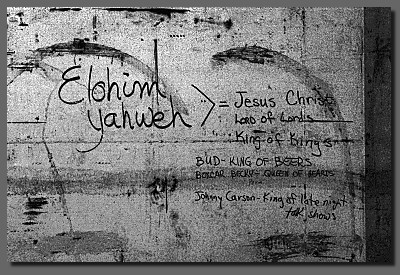 Elohim
Yahweh > = Jesus Christ
Lord of Lords
King of Kings
BUD - KING OF BEERS
BOXCAR BECKY - QUEEN OF HEARTS
Johnny Carson - King of late night
talk shows